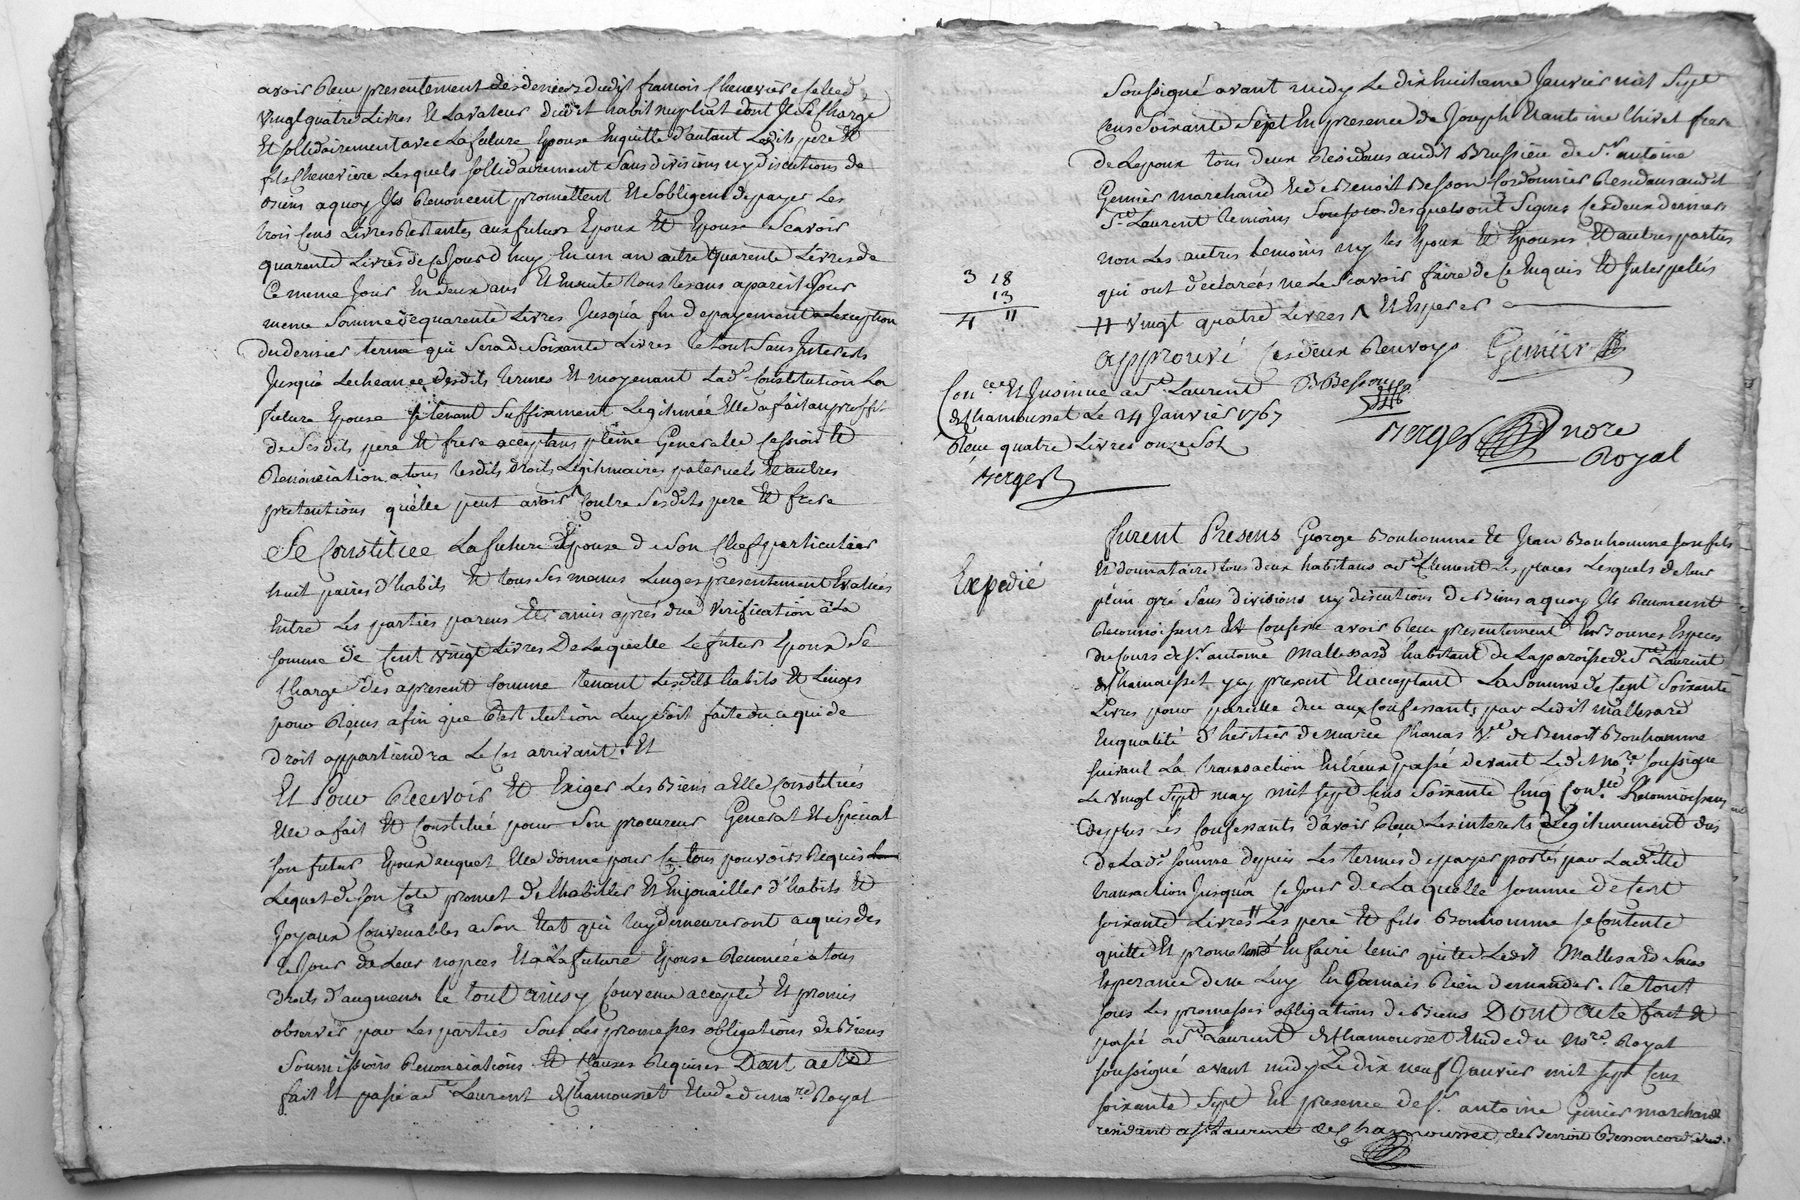 avoir Reçu presentement des deniers dudit francois Chenevier celled
vingt quatre Livres Et La valeur dudit habit nuptial dont Il Se Charge
Et sollidairement avec La future Epouse En quitte d'autant Lesdits pere Et
fils Cheneviere Lesquels sollidairement Sans divisions ny discutions de
biens a quoy Ils Renoncent promettent Et S'obligent de payer Les
trois Cens Livres Restantes aux futurs Epoux Et Epouse Scavoir
quarente Livres de Ce Jour d'huy En un an autre quarente Livres de
Ce meme Jour En deux ans Et Ensuite tous les ans a pareil Jour
meme Somme de quarente Livres Jusqu'a fin de payement a L'exception
du dernier terme qui Sera de Soixante Livres Le tout Sans Interests
Jusqua Lecheance desdits termes Et moyenant Lad.e Constitution La
future Epouse se tenant Suffisament Legitimée Elle a fait au proffit
de Sesdits pere Et frere acceptans pleine Generalle Cession Et
Renonciation a tous Lesdits droits Legitimaires paternels Et autres
pretentions qu'elle peut avoir Contre Sesdits pere Et frere
Se Constitue La future Epouse de Son Chef particulier
huit paires d'habits Et tous Ses menus Linges presentement Evalués
Entre Les parties parens Et amis aprés due Verification a La
somme de Cent vingt Livres De Laquelle Le futur Epoux Se
Charge des apresent Comme tenant Lesdits habits Et Linges
pour Reçus afin que Restitution Luy Soit faite ou a qui de
Droit appartiendra Le Cas arrivant. Et
Et Pour Recevoir Et Exiger Les Biens a Elle Constitués
Elle a fait Et Constitué pour Son procureur General Et Special
son futur Epoux auquel Elle donne pour Ce tous pouvoirs Requis
Lequel de Son Coté promet de L'habiller Et Enjouailler d'habits Et
Joyaux Convenables a Son Etat qui Luy demeureront acquis des
le Jour de Leur nopces Et a La future Epouse Renoncé a tous
Droits d'augmens. le tout ainsy Convenu accepté Et promis
observer par Les parties Sous Les promesses obligations de Biens
Soumissions Renonciations Et Clauses Requises Dont acte
fait Et passé a St Laurent de Chamousset Etude du no.re Royal
Soussigné avant midy Le dix huitieme Janvier mil Sept
Cens Soixante Sept En presence de Joseph Et antoine frere
De L'epoux tous deux Residans audit Brussieu de Sr antoine
Genier marchand Et de Benoit Besson Cordonnier Residans audit
St Laurent temoins Soussignés desquels ont Signés Ces deux derniers
non Les autres temoins ny Les Epoux Et Epouse Et autres parties
qui ont déclarées ne Le Scavoir faire de Ce Enquis Et Interpellés
3 18
13
4 11
# vingt quatre Livres ^ Et Esperer
approuvé Ces deux Renvoys Genier
B Besson
Con.lé Et Insinué a St Laurent
de Chamousset Le 24 Janvier 1767
Reçu quatre Livres onze Sols
Berger
Berger nore
Royal
Expedié
furent Presens George Bonhomme Et Jean Bonhomme Son fils
Et donnataire tous deux habitans a St Clement Les places Lesquels de Leur
plein gré Sans divisions ny discutions de Biens a quoy Ils Renoncent
Reconnoissent Et Confesse avoir Reçu presentement En Bonnes Especes
du Cours de Sr antoine Mallessard habitant de La paroisse de St Laurent
de Chamousset y cy present Et acceptant La Somme de Cent Soixante
Livres pour pareille due aux Confessants par Ledit Mallessard
En qualité d'heritier de marie Chanas Ve de Benoit Bonhomme
suivant La transaction Entr'eux passé devant Ledit No.re Soussigné
Le vingt Sept may mil Sept Cens Soixante Cinq Con.lée Reconnoissans
Desplus Les Confessants d'avoir Reçu Les interests Legitimement dus
De Lad.e Somme depuis Les termes de payer portés par Ladite
transaction Jusqua Ce Jour De Laquelle Somme de Cent
soixante Livres Les pere Et fils Bonhomme se Contente
quitte Et promettent En faire tenir quitte Ledit Mallessard Sans
Esperance de ne Luy En Jamais Rien demander. Le tout
sous Les promesses obligations de Biens Dont acte fait Et
passé a St Laurent de Chamousset Etude du No.re Royal
soussigné avant midy Le dix neuf Janvier mil Sept Cens
soixante Sept En presence de Sr. antoine Genier marchand
residant a St Laurent de Chamousset, de Benoit Besson